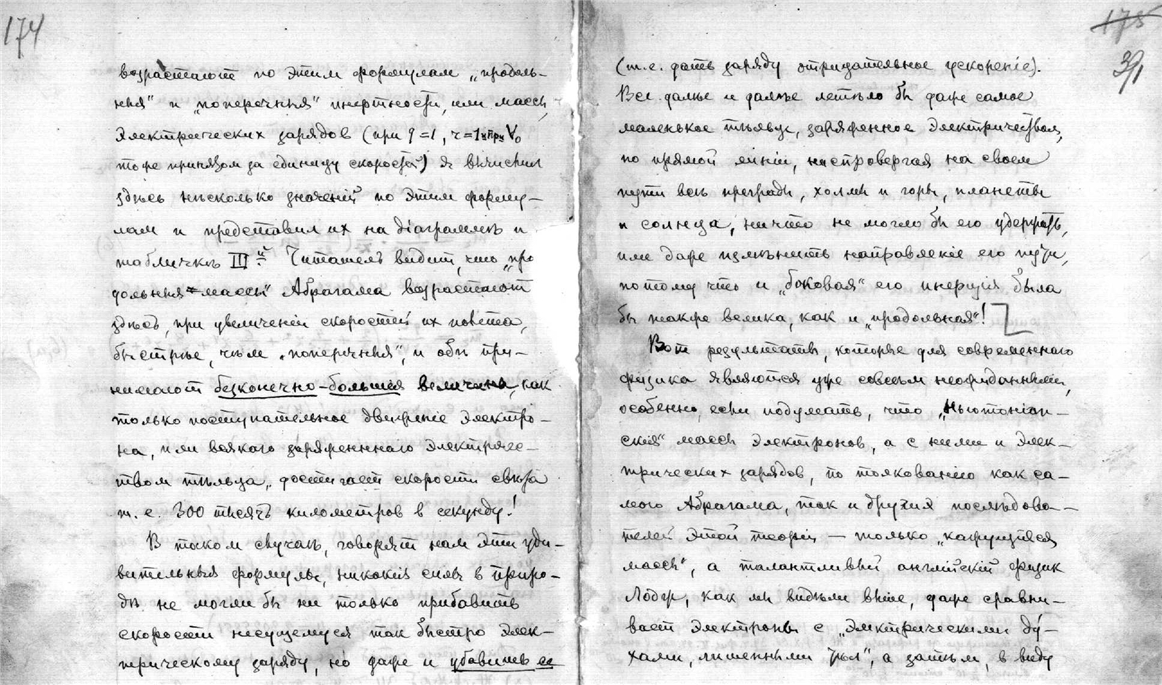 174
возрастаютъ по этим формулам „продоль-
ныя" и „поперечныя" инертности, или массы,
электрических зарядов (при q=1, r=1 и при V₀
тоже принятом за единицу скорости) я вычислил
здѣсь нѣсколько значеній по этим форму-
лам и представил их на діаграммѣ и
табличкѣ III-й. Читатель видит, что „про
дольныя" массы Абрагама возрастают
здѣсь, при увеличеніи скоростей их полета,
быстрѣе, чѣм „поперечныя", и обѣ при-
нимают безконечно-большія величины, как
только поступательное движеніе электро-
на, или всякаго заряженнаго электриче-
ством тѣльца, достигает скорости свѣта
т. е. 300 тысяч километров в секунду!
В таком случаѣ, говорят нам эти уди-
вительныя формулы, никакія силы в приро-
дѣ не могли бы не только прибавить
скорости несущемуся так быстро элек-
трическому заряду, но даже и убавить ее
175
39
(т. е. дать заряду отрицательное ускореніе).
Все далѣе и далѣе летѣло бы даже самое
маленькое тѣльце, заряженное электричеством,
по прямой линіи, ниспровергая на своем
пути всѣ преграды, холмы и горы, планеты
и солнца, ничто не могло бы его удержать,
или даже измѣнить направленіе его пути,
потому что и „боковая" его инерція была
бы также велика, как и „продольная"!
Вот результаты, которые для современнаго
физика являются уже совсѣм неожиданными,
особенно, если подумать, что „Ньютоніан-
скія" массы электронов, а с ними и элек-
трических зарядов, по толкованію как са-
мого Абрагама, так и других послѣдова-
телей этой теоріи — только „кажущіяся
массы", а талантливый англійскій физик
Лодж, как мы видѣли выше, даже сравни-
вает электроны с „электрическими ду-
хами, лишенными тѣл", а затѣм, в виду